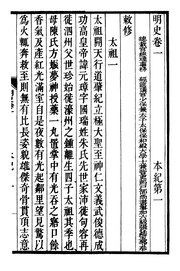 明史卷一 本紀第一
敕修
太祖一
太祖開天行道肇紀立極大聖至神仁文義武俊德成
功高皇帝諱元璋字國瑞姓朱氏先世家沛徙句容再
徙泗州父世珍始徙濠州之鍾離生四子太祖其季也
母陳氏方娠夢神授藥一丸置掌中有光吞之寤口餘
香氣及產紅光滿室自是夜數有光起鄰里望見驚以
為火輒奔救至則無有比長姿貌雄傑奇骨貫頂志意